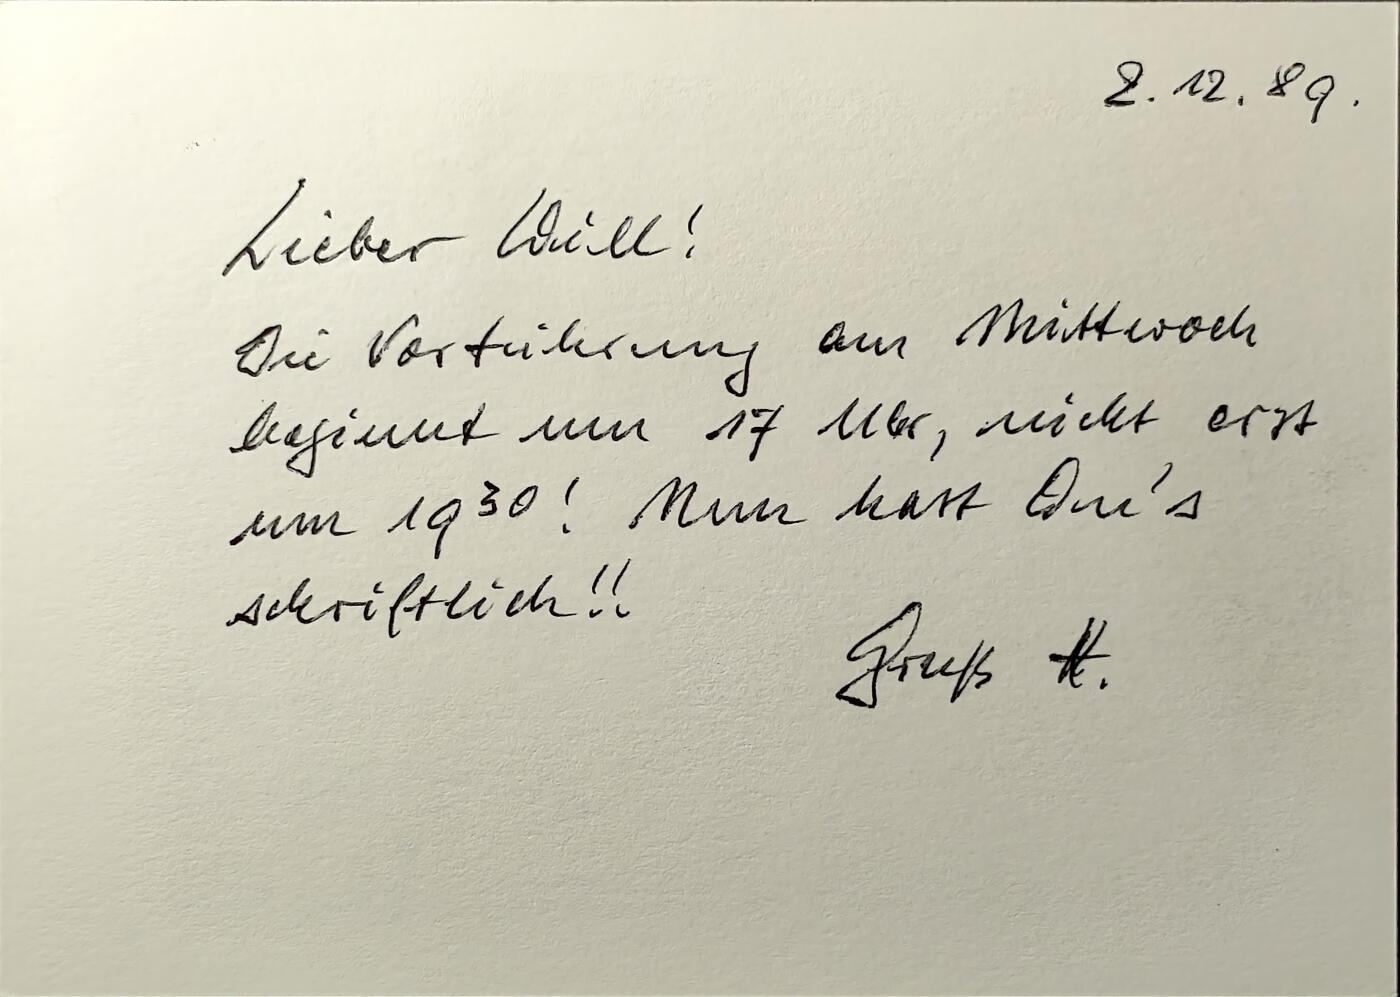 2.12.89.
Lieber Willi!
Die Vorführung am Mittwoch
beginnt um 17 Uhr, nicht erst
um 19³⁰! Nun hast Du's
schriftlich!!
Gruß H.